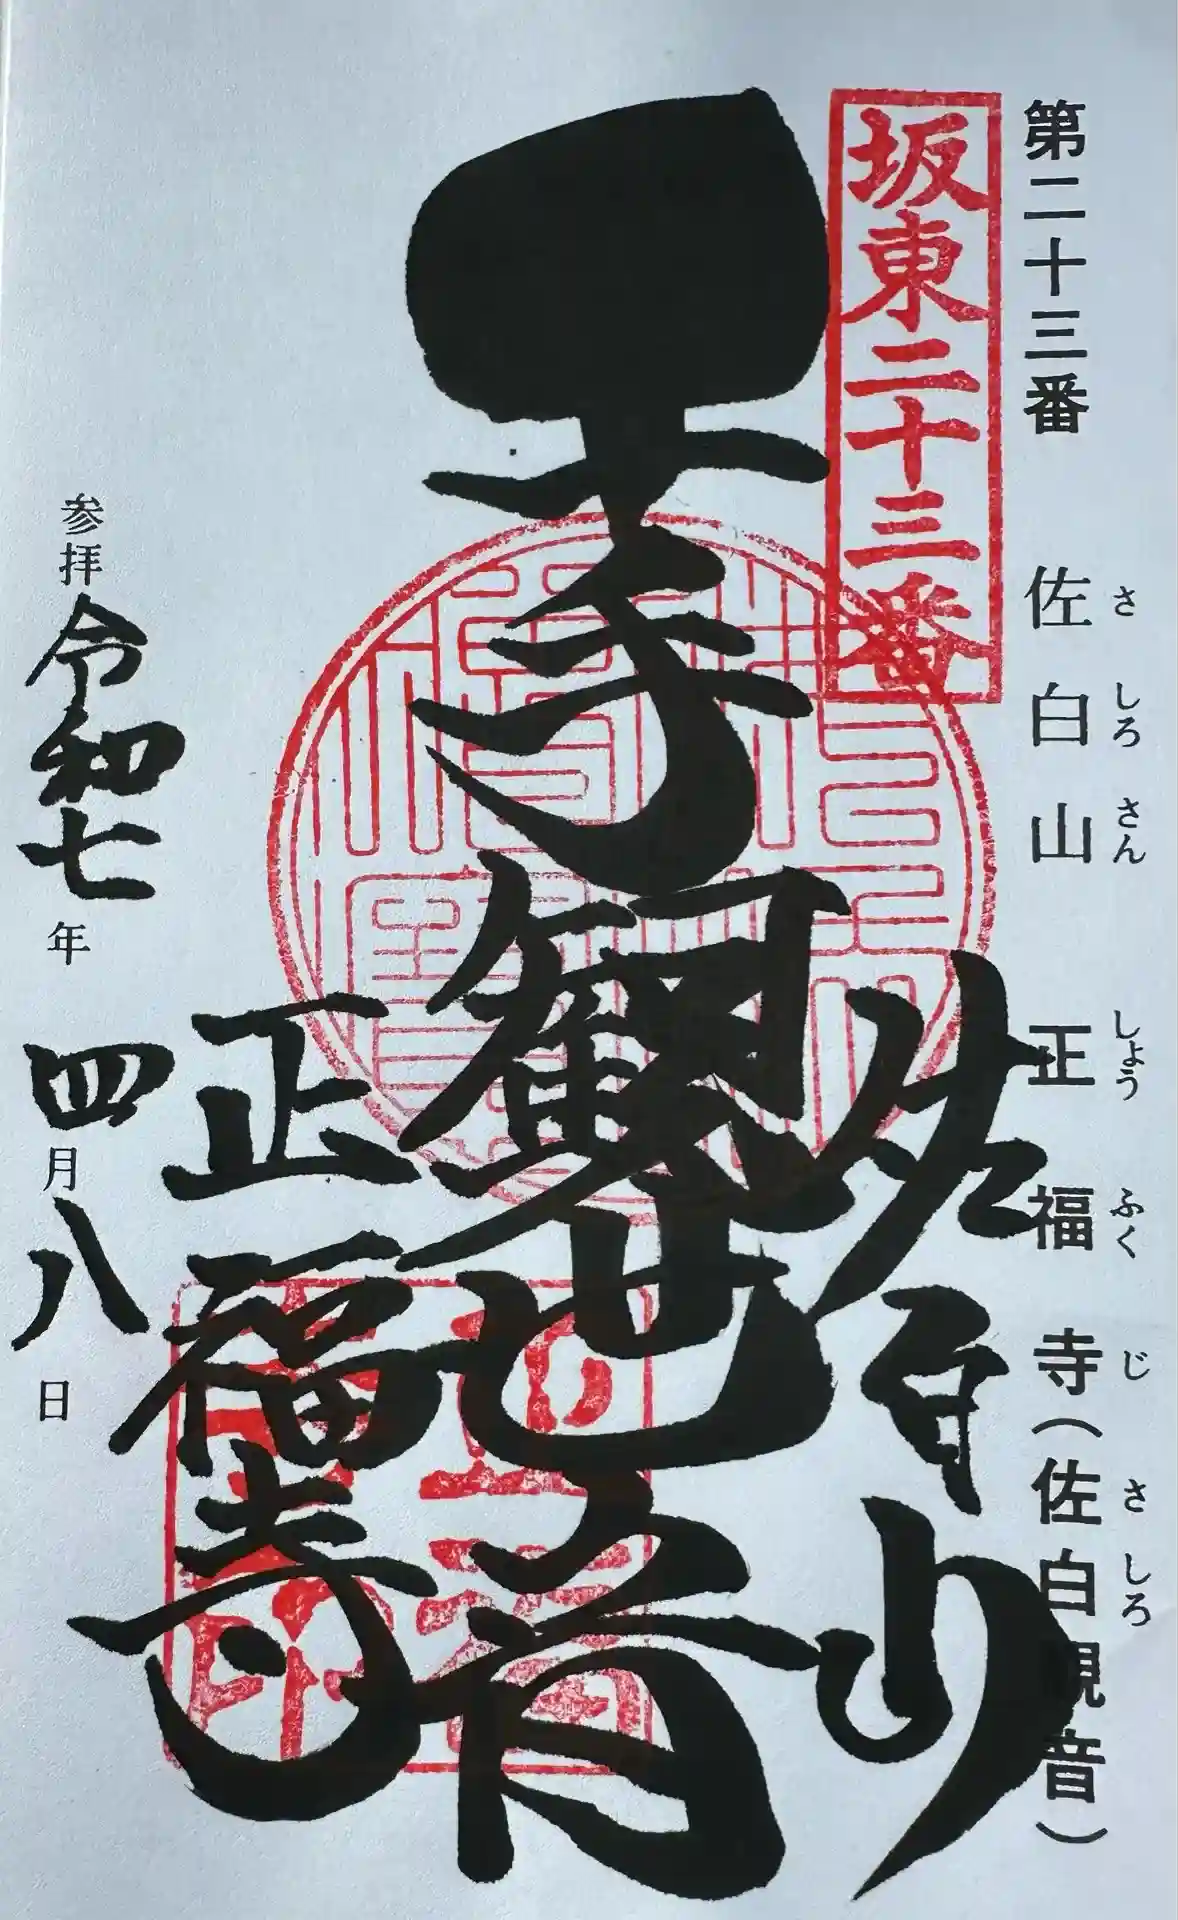 第二十三番 佐白山 正福寺（佐白観音）
さしろさん しょうふくじ さしろ
坂東二十三番
佐白山
千手観世音
正福寺
参拝 令和七年 四月八日